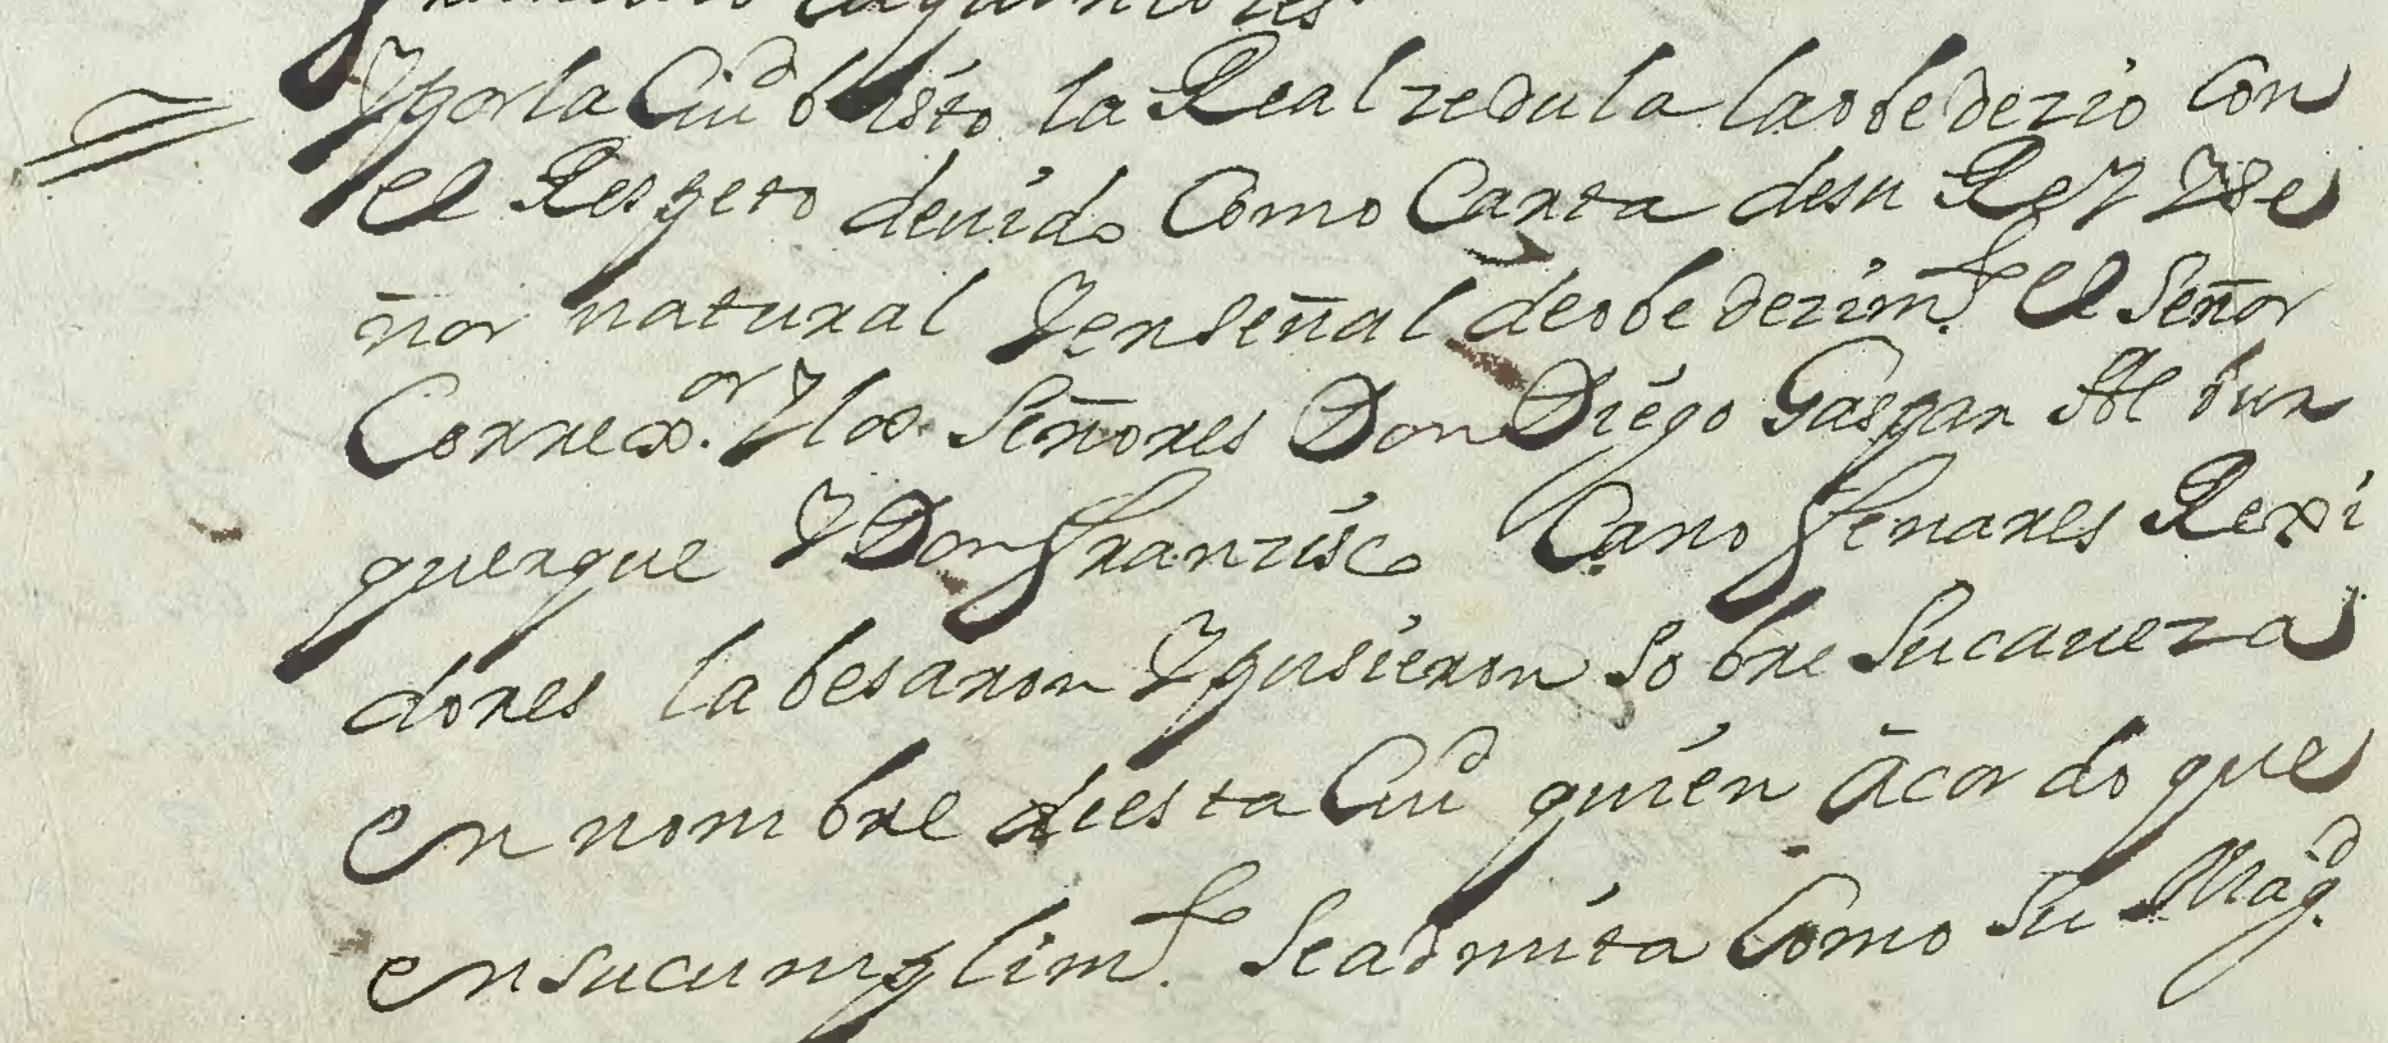 Y por la Ciud bisto la Real zedula la obedezio Con
el Respeto deuido Como Carta de su Rey Y Se
ñor natural Y en señal de obedezimto el Señor
Correxor. Y los Señores Don Diego Gaspar Al bur
querque Y Don Franzisco Cano Henares Rexi
dores la besaron Y pusieron sobre su caueza
en nombre desta Ciud quien acordo que
en su cumplimto. Se admita Como Su Magd.